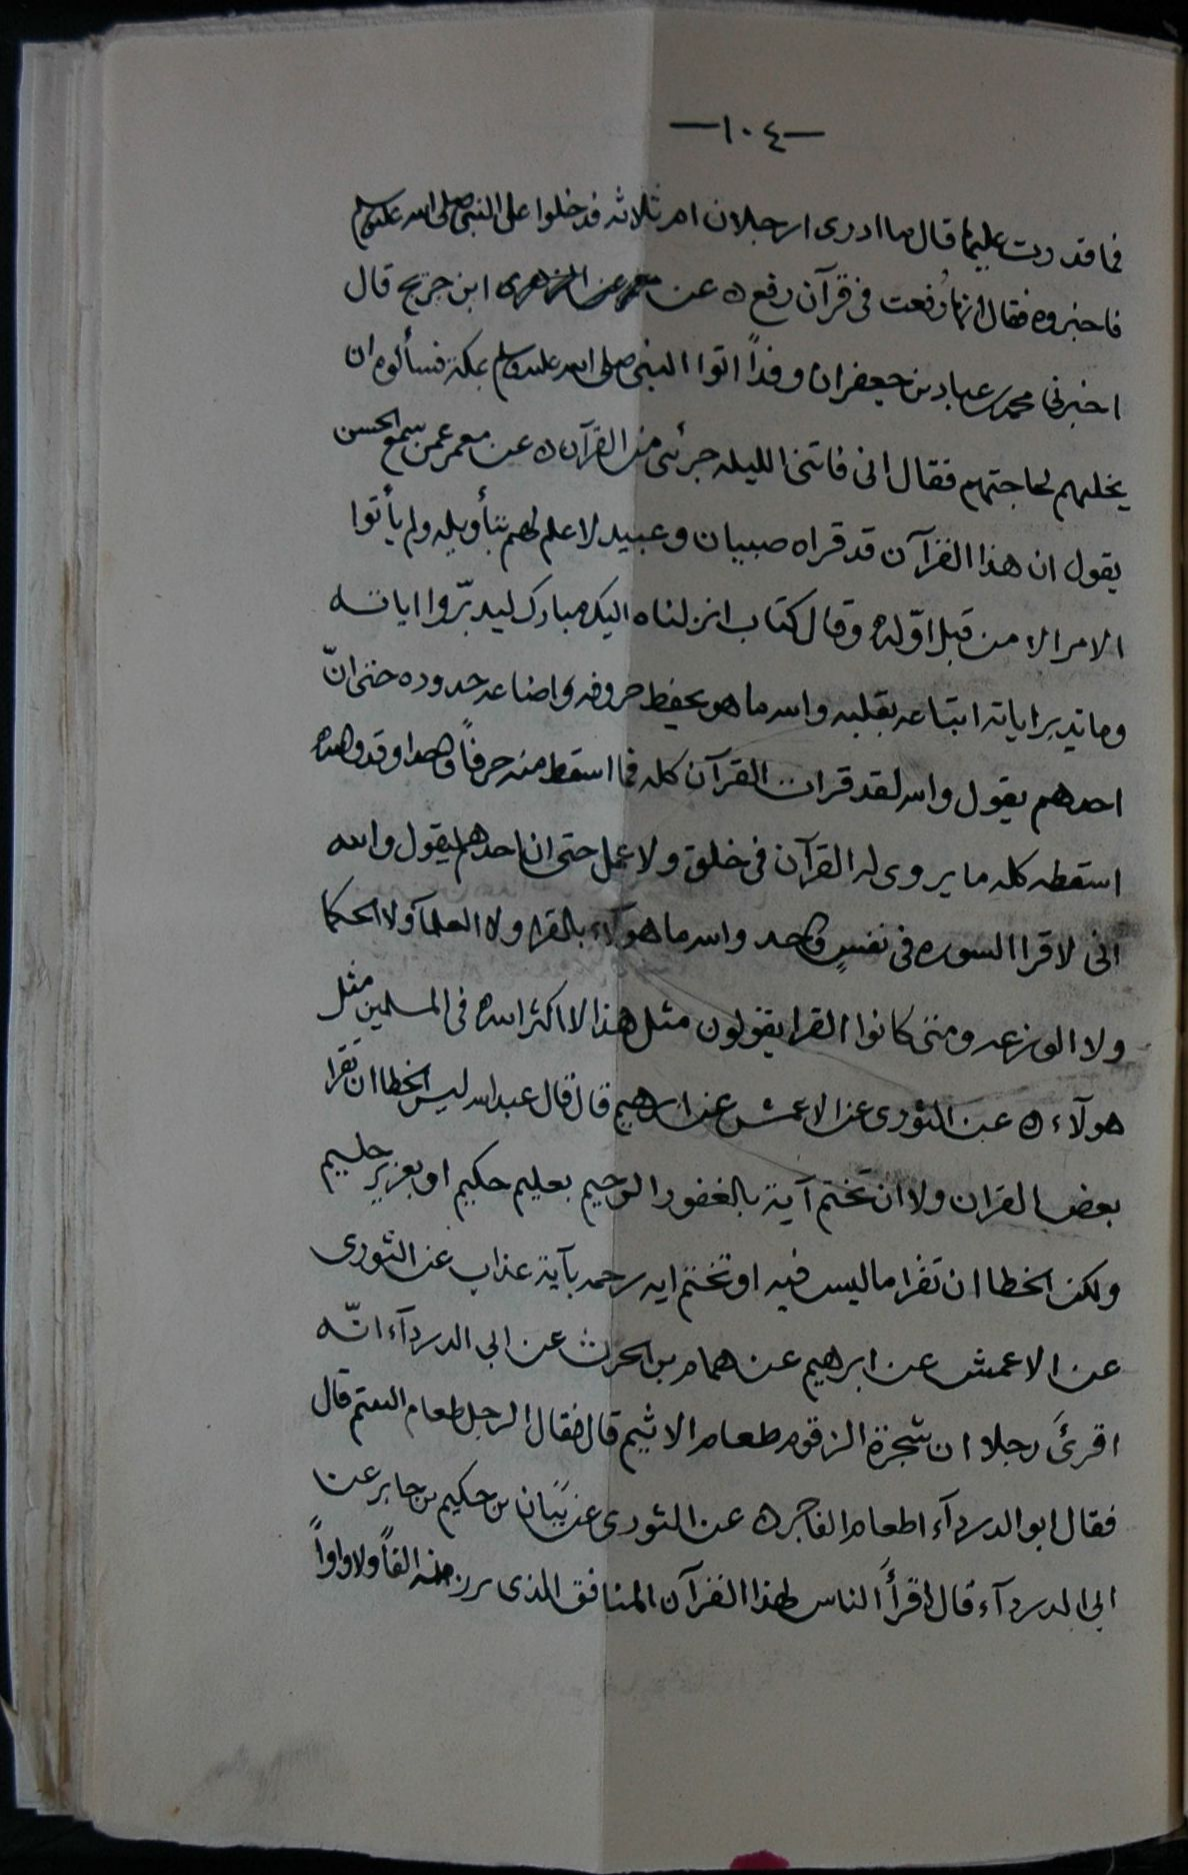 —١٠٤—
فما قدرت عليها قال ما ادرى ارجلان ام ثلاثه فدخلوا على النبى صلى الله عليه وسلم
فاخبروه فقال انها رُفعت فى قرآن رفع ه عن ابن جريج قال
اخبرنى محمد بن عباد بن جعفر ان وفداً اتوا النبى صلى الله عليه وسلم بمكة فسألوه ان
يخليهم لحاجتهم فقال انى فاتنى الليله جزئى من القرآن ه عن معمر عمن سمع الحسن
يقول ان هذا القرآن قد قراه صبيان وعبيد لا علم لهم بتأويله ولم يأتوا
الامر الا من قبل اوّله وقال كتاب انزلناه اليك مبارك ليدبّروا اياته
وما تدبر اياته اتباعه بقلبه والله ما هو بحفظ حروفه واضاعه حدوده حتى انّ
احدهم يقول والله لقد قرات القرآن كله فما اسقط منه حرفاً واحدا وقد والله
اسقطه كله ما يروى له القرآن فى خلق ولا عمل حتى ان احدهم ليقول والله
انى لاقرا السوره فى نفسٍ واحد والله ما هولآء بالقرا ولا العلمآ ولا الحكما
ولا الوزعه ومتى كانوا القرا يقولون مثل هذا لا اكثر الله فى المسلمين مثل
هولآء ه عن الثورى عن الاعمش عن ابرهيم قال قال عبد الله ليس الخطا ان تقرا
بعض القران ولا ان تختم آية بالغفور الرحيم بعليم حكيم او بعزيز حليم
ولكن الخطا ان تقرا ما ليس فيه او تختم ايه رحمه بآية عذاب عن الثورى
عن الاعمش عن ابرهيم عن همام بن الحرث عن ابى الدردآء انّه
اقرئَ رجلا ان شجرة الزقوم طعام الاثيم قال فقال الرجل طعام اليتيم قال
فقال ابو الدردآء طعام الفاجر ه عن الثورى عن بَيَان بن حكيم بن جابر عن
ابى الدردآء قال اقرأ الناس لهذا القرآن المنافق الذى منه الفاً ولا واواً